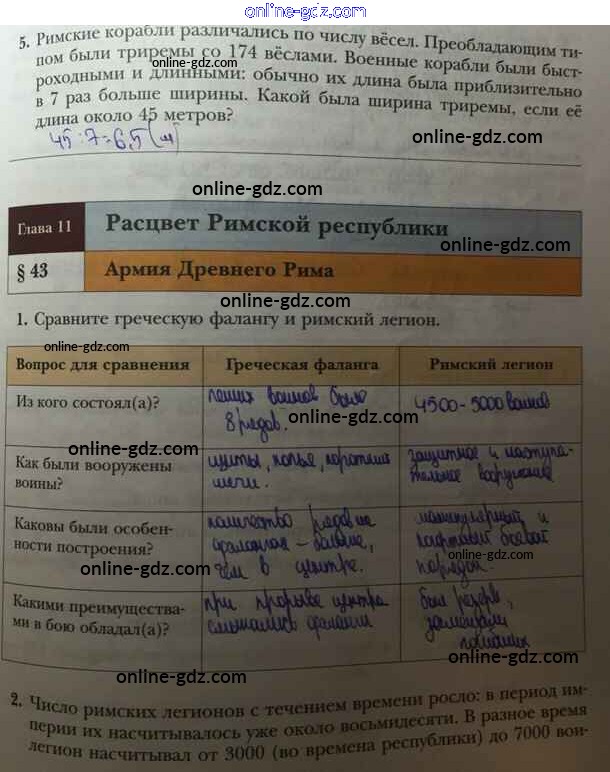 online-gdz.com
5. Римские корабли различались по числу вёсел. Преобладающим ти-
пом были триремы со 174 вёслами. Военные корабли были быст-
роходными и длинными: обычно их длина была приблизительно
в 7 раз больше ширины. Какой была ширина триремы, если её
длина около 45 метров?
45 : 7 = 6,5 (м)
online-gdz.com
online-gdz.com
Глава 11
Расцвет Римской республики
online-gdz.com
§ 43
Армия Древнего Рима
online-gdz.com
1. Сравните греческую фалангу и римский легион.
online-gdz.com
Вопрос для сравнения
Греческая фаланга
Римский легион
Из кого состоял(а)?
пеших воинов было
8 рядов.
4500-5000 воинов
online-gdz.com
online-gdz.com
Как были вооружены
воины?
щиты, копья, короткие
мечи.
защитное и наступа-
тельное вооружение
Каковы были особен-
ности построения?
количество рядов на
флангах - больше,
чем в центре.
манипулярный и
боевой
порядок.
online-gdz.com
online-gdz.com
Какими преимущества-
ми в бою обладал(а)?
при прорыве центра
смыкались фланги
был резерв,
заменяли
погибших
online-gdz.com
online-gdz.com
2. Число римских легионов с течением времени росло: в период им-
перии их насчитывалось уже около восьмидесяти. В разное время
легион насчитывал от 3000 (во времена республики) до 7000 вои-